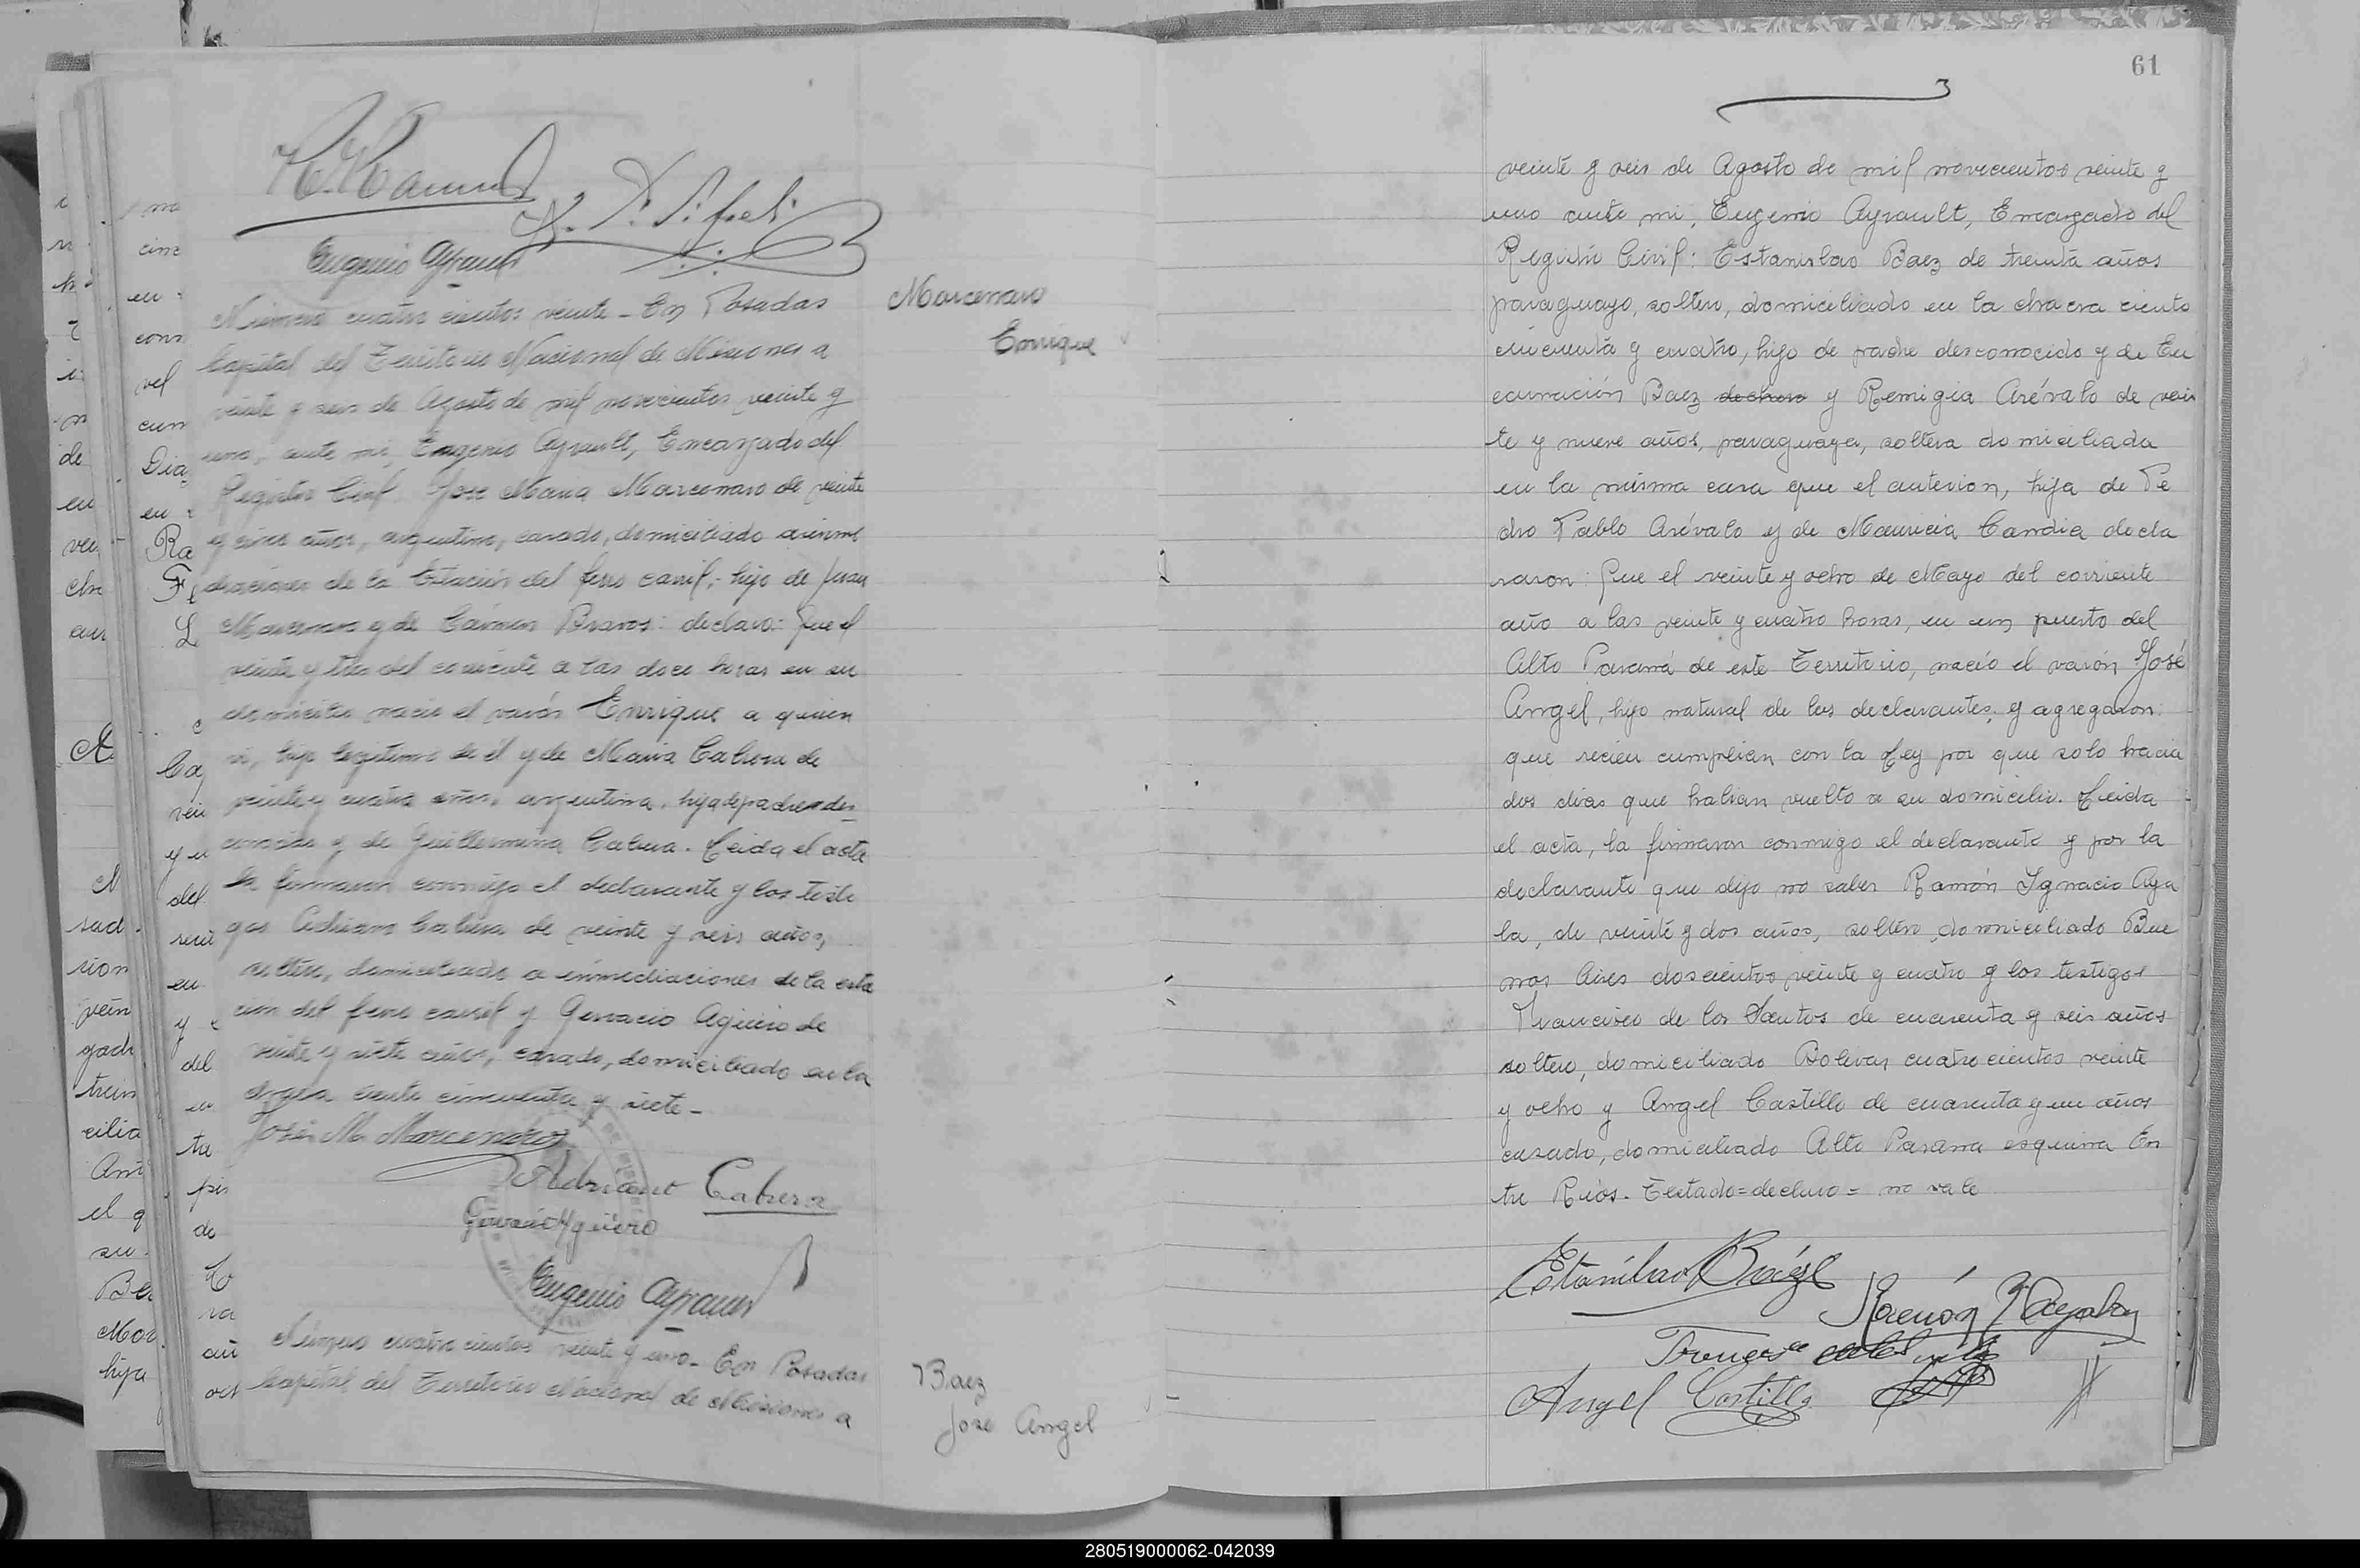 Eugenio Ayrault
Número cuatro cientos veinte - En Posadas
Marcenaro
Enrique
Capital del Territorio Nacional de Misiones a
veinte y seis de Agosto de mil novecientos veinte y
uno, ante mi, Eugenio Ayrault, Encargado del
Registro Civil José Maria Marcenaro de veinte
y cinco años, argentino, casado, domiciliado a inme
diaciones de la Estación del ferro carril, hijo de Juan
Marcenaro y de Cármen Bravos: declaro: Que el
veinte y tres del corriente a las doce horas en su
domicilio nacio el varón Enrique a quien
vi, hijo legitimo de él y de Maria Cabrera de
veinte y cuatro años, argentina, hija de padre des
conocido y de Guillermina Cabrera. Leida el acta
la firmaron conmigo el declarante y los testi
gos Adriano Cabrera de veinte y seis años,
soltero, domiciliado a inmediaciones de la esta
ción del ferro carril y Gervacio Agüero de
veinte y siete años, casado, domiciliado en la
chacra ciento cincuenta y siete -
José M. Marcenaro
Adriano Cabrera
Gervacio Agüero
Eugenio Ayrault
Número cuatro cientos veinte y uno - En Posadas
Capital del Territorio Nacional de Misiones a
Baez
José Angel
61
veinte y seis de Agosto de mil novecientos veinte y
uno ante mi, Eugenio Ayrault, Encargado del
Registro Civil: Estanislao Baez de treinta años
paraguayo, soltero, domiciliado en la chacra ciento
cincuenta y cuatro, hijo de padre desconocido y de En
carnación Baez declaro y Remigia Arévalo de vein
te y nueve años, paraguaya, soltera domiciliada
en la misma casa que el anterior, hija de Pe
dro Pablo Arévalo y de Mauricia Candia decla
raron: Que el veinte y ocho de Mayo del corriente
año a las veinte y cuatro horas, en un puerto del
Alto Paraná de este Territorio, nació el varón José
Angel, hijo natural de los declarantes, y agregaron:
que recien cumplian con la Ley por que solo hacia
dos dias que habian vuelto a su domicilio. Leida
el acta, la firmaron conmigo el declarante y por la
declarante que dijo no saber Ramón Ignacio Aya
la, de veinte y dos años, soltero, domiciliado Bue
nos Aires doscientos veinte y cuatro y los testigos
Francisco de los Santos de cuarenta y seis años
soltero, domiciliado Bolivar cuatro cientos veinte
y ocho y Angel Castillo de cuarenta y un años
casado, domiciliado Alto Parana esquina En
tre Rios - Testado = declaro = no vale
Estanislao Baéz
Ramón I. Ayala
Angel Castillo
280519000062-042039